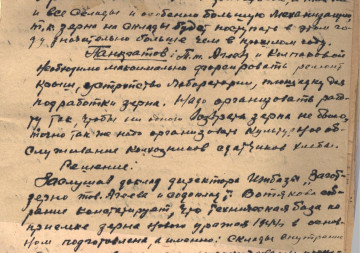 и все склады и особенно большую механизацию
т.к. зерна на склады будет поступать в этом го-
ду значительно больше чем в прошлом году.
Панкратов: т.т. Агееву и Колтаковой
необходимо максимально форсировать ремонт
крыш, устройство лаборатории, площадку для
подработки зерна. Надо организовать рабо-
ту так, чтобы ни одного зерна не было,
точно так же надо организовать культурное об-
служивание колхозников сдатчиков хлеба.
Решение:
Заслушав доклад директора
тов. Агеева и содоклад т. со-
брание констатирует, что техническая база по
приемке зерна нового урожая 1944 г. в основ-
ном подготовлена, а именно: склады внутренне